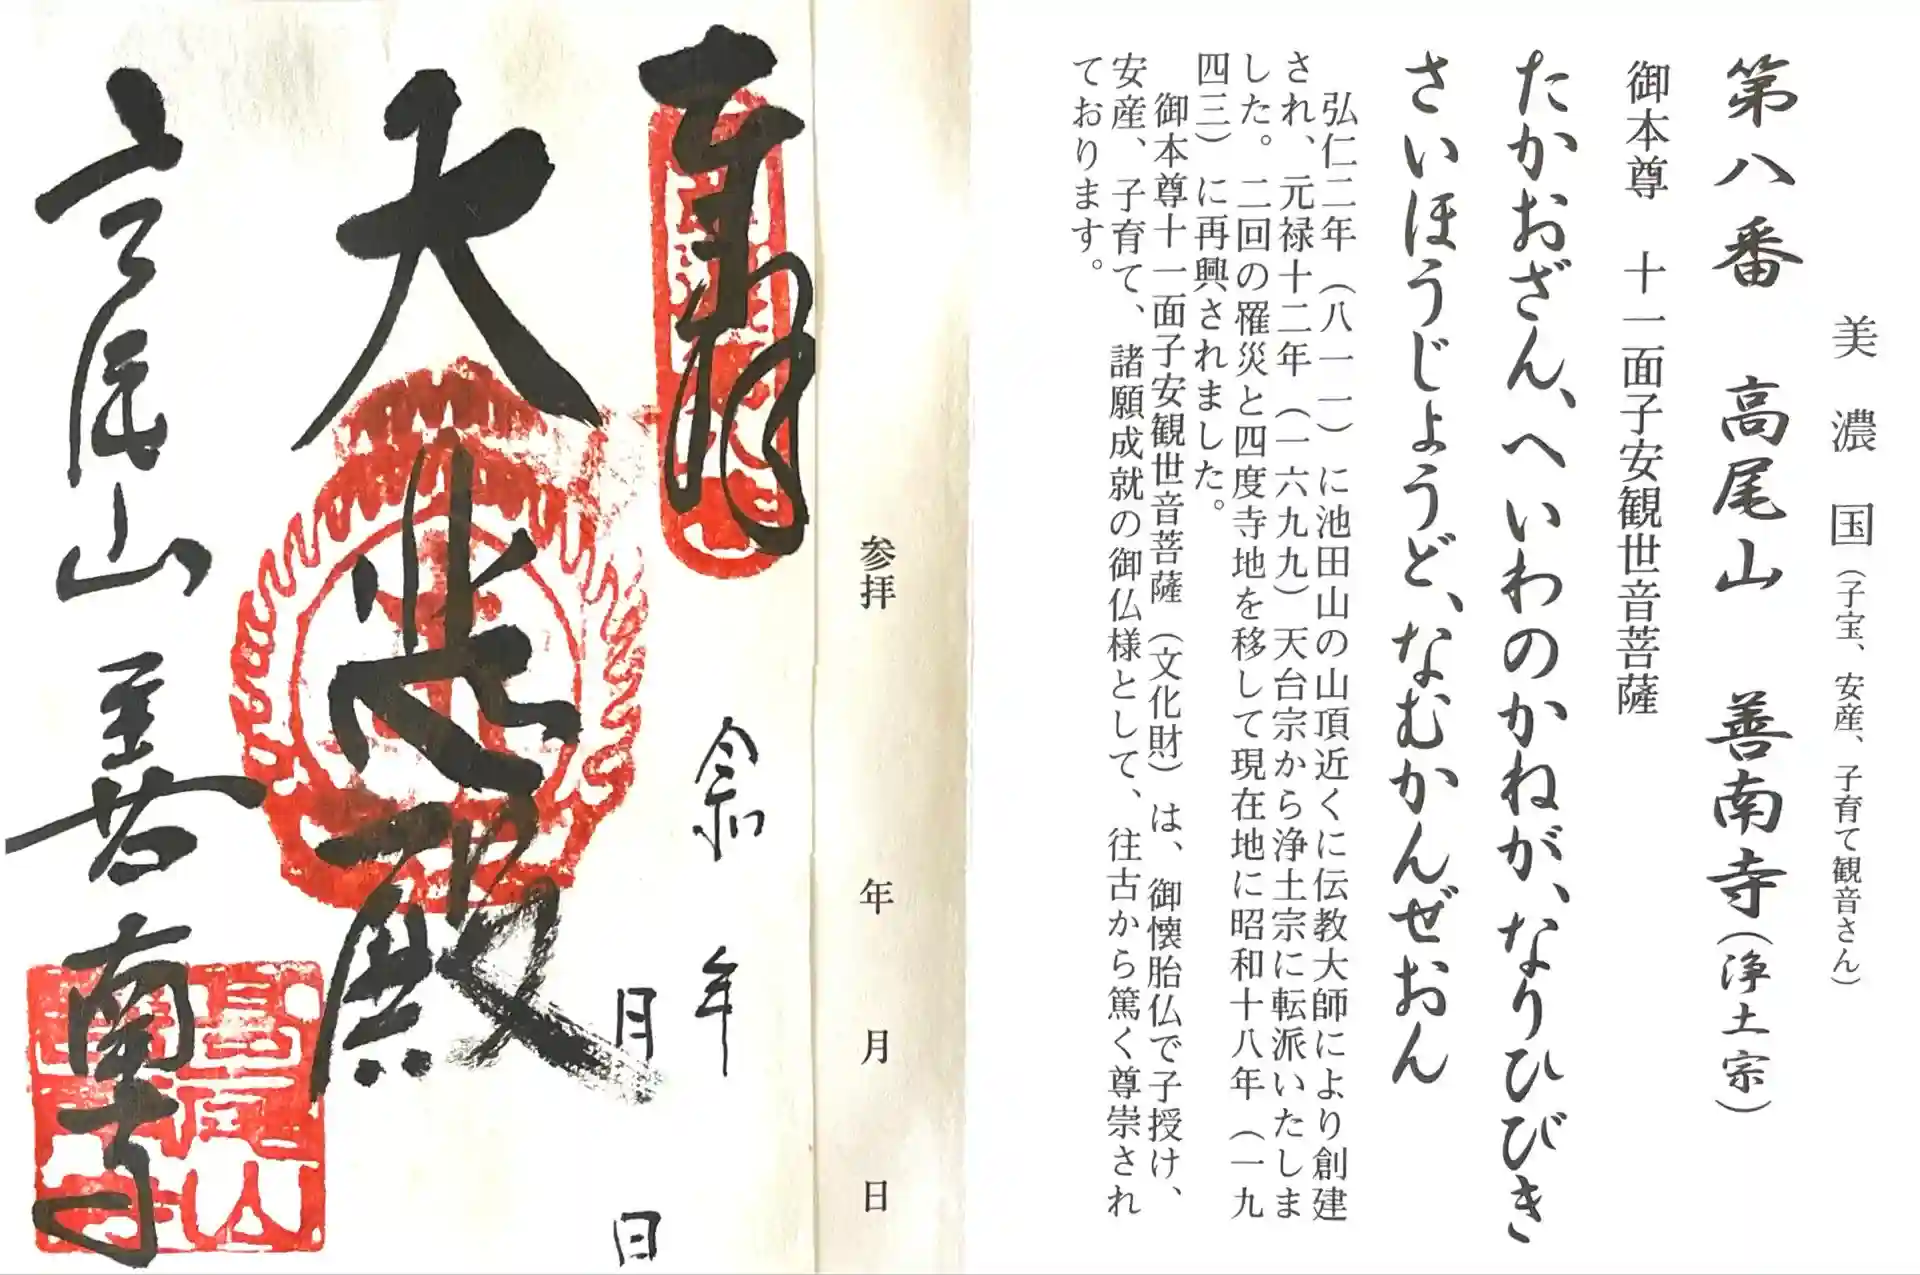 美濃国（子宝、安産、子育て観音さん）
第八番　高尾山　善南寺（浄土宗）
御本尊　十一面子安観世音菩薩
たかおざん、へいわのかねが、なりひびき
さいほうじょうど、なむかんぜおん
弘仁二年（八一一）に池田山の山頂近くに伝教大師により創建
され、元禄十二年（一六九九）天台宗から浄土宗に転派いたしま
した。二回の罹災と四度寺地を移して現在地に昭和十八年（一九
四三）に再興されました。
御本尊十一面子安観世音菩薩（文化財）は、御懐胎仏で子授け、
安産、子育て、諸願成就の御仏様として、往古から篤く尊崇され
ております。
参拝　年　月　日
奉拝
令和　年
月　日
大悲殿
高尾山　善南寺
高尾山